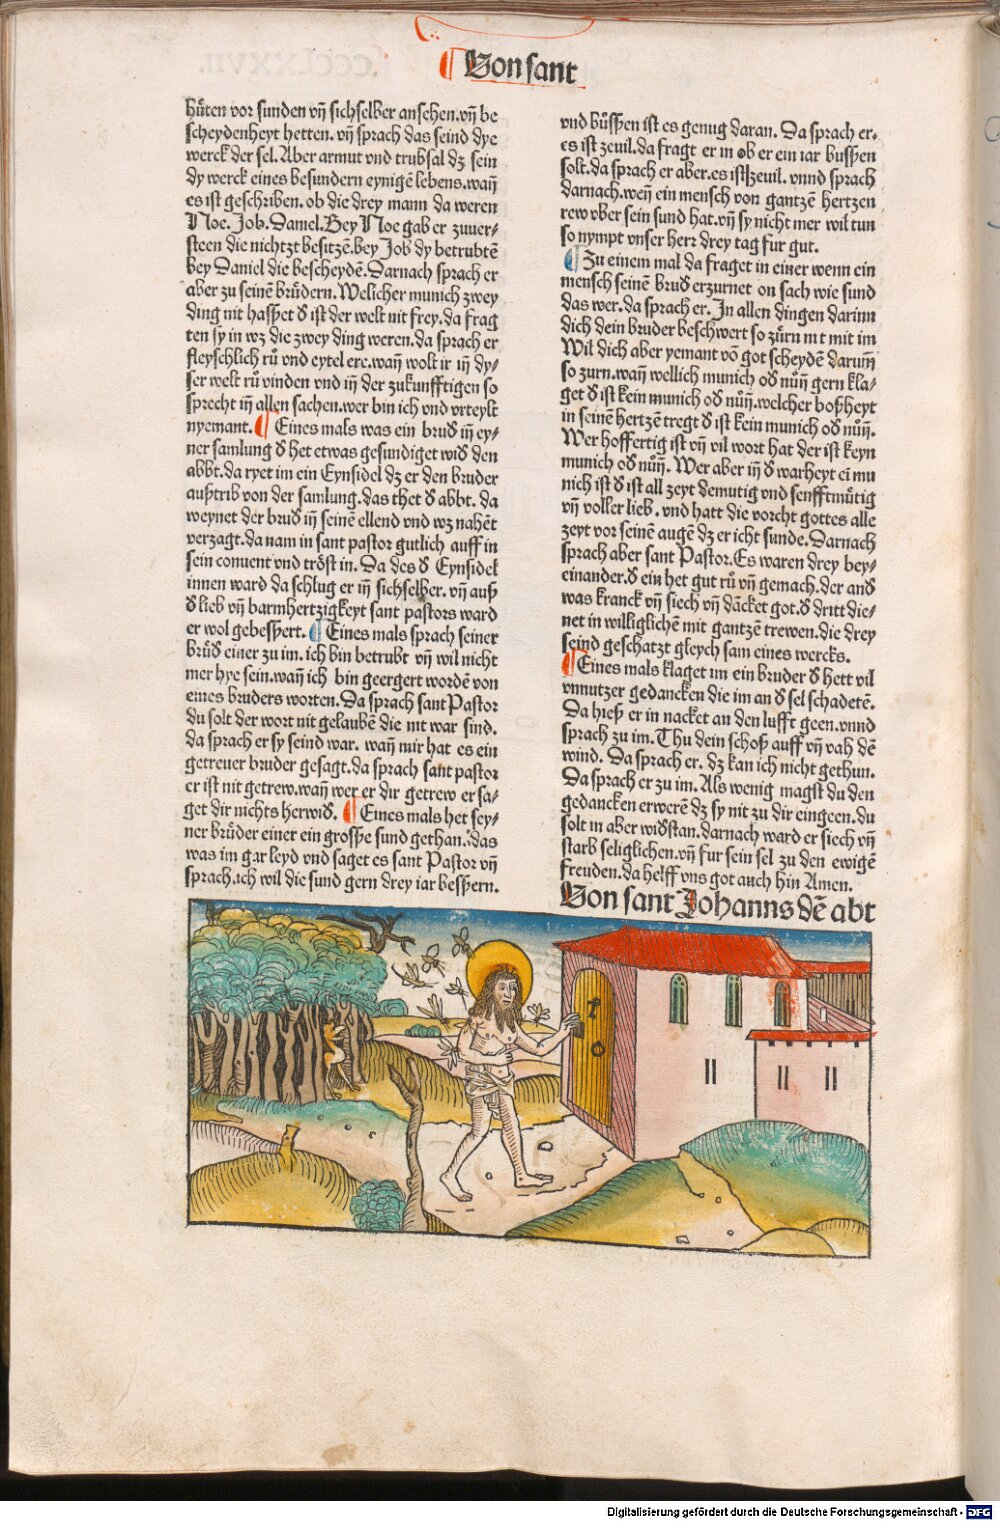 Von sant
hüten vor sunden vñ sichselber ansehen.vñ be
scheydenheyt hetten. vñ sprach das seind dye
werck der sel. Aber armut vnd trubsal dz sein
dy werck eines besundern eynigẽ lebens.wañ
es ist geschriben. ob die drey mann da weren
Noe. Job. Daniel. Bey Noe gab er zuuer⸗
steen die nichtzt besitzẽ.bey Job dy betrubtẽ
bey Daniel die bescheydẽ. Darnach sprach er
aber zu seinẽ brüdern. Welicher munich zwey
ding nit hasset ð ist der welt nit frey.da frag
ten sy in wz die zwey ding weren.da sprach er
fleyschlich rů vnd eytel ere.wañ wolt ir iñ dy⸗
ser welt rů vinden vnd iñ der zukunfftigen so
sprecht iñ allen sachen.wer bin ich vnd vrteylt
nyemant. ¶ Eines mals was ein brud iñ ey⸗
ner samlung ð het etwas gesundiget wið den
abbt.da ryet im ein Eynsidel dz er den bruder
außtrib von der samlung.das thet ð abbt. da
weynet der brud iñ seinẽ ellend vnd wz nahẽt
verzagt.da nam in sant pastor gutlich auff in
sein conuent vnd tröst in. Da des ð Eynsidel
innen ward da schlug er iñ sichselber. vñ auß
ð lieb vñ barmhertzigkeyt sant pastors ward
er wol gebessert. ¶ Eines mals sprach seiner
brüð einer zu im. ich bin betrubt vñ wil nicht
mer hye sein.wañ ich bin geergert wordẽ von
eines bruders worten. Da sprach sant Pastor
du solt der wort nit gelaubẽ die nit war sind.
da sprach er sy seind war. wañ mir hat es ein
getreuer bruder gesagt.da sprach sant pastor
er ist nit getrew.wañ wer er dir getrew er sa⸗
get dir nichts herwið. ¶ Eines mals het sey⸗
ner brüder einer ein grosse sund gethan.das
was im gar leyd vnd saget es sant Pastor vñ
sprach.ich wil die sund gern drey iar bessern.
vnd büssen ist es genug daran. Da sprach er.
es ist zeuil.da fragt er in ob er ein iar bussen
solt.da sprach er aber.es ist zeuil. vnnd sprach
darnach.weñ ein mensch von gantzẽ hertzen
rew vber sein sund hat.vñ sy nicht mer wil tun
so nympt vnser herr drey tag fur gut.
¶ Zu einem mal da fraget in einer wenn ein
mensch seinẽ bruð erzurnet on sach wie sund
das wer.da sprach er. In allen dingen darinn
dich dein bruder beschwert so zürn nit mit im
Wil dich aber yemant võ got scheydẽ darum̃
so zurn.wañ wellich munich oð nuñ gern kla⸗
get ð ist kein munich oð nuñ.welcher boßheyt
in seinẽ hertzẽ tregt ð ist kein munich oð nuñ.
Wer hoffertig ist vñ vil wort hat der ist keyn
munich oð nuñ. Wer aber iñ ð warheyt ei mu
nich ist ð ist all zeyt demutig vnd senfftmütig
vñ voller lieb. vnd hatt die vorcht gottes alle
zeyt vor seinẽ augẽ dz er icht sunde. Darnach
sprach aber sant Pastor. Es waren drey bey⸗
einander.ð ein het gut rů vñ gemach. der and
was kranck vñ siech vñ dãcket got.ð dritt die⸗
net in williglichẽ mit gantzẽ trewen.die drey
seind geschatzt gleych sam eines wercks.
¶ Eines mals klaget im ein bruder ð hett vil
vnnutzer gedancken die im an ð sel schadetẽ.
Da hieß er in nacket an den lufft geen.vnnd
sprach zu im. Thu dein schoß auff vñ vah dẽ
wind. Da sprach er. dz kan ich nicht gethun.
Da sprach er zu im. Als wenig magst du den
gedancken erwerẽ dz sy nit zu dir eingeen.du
solt in aber wiðstan.darnach ward er siech vñ
starb seliglichen.vñ fur sein sel zu den ewigẽ
freuden.da helff vns got auch hin Amen.
Von sant Johanns dẽ abt
Digitalisierung gefördert durch die Deutsche Forschungsgemeinschaft - DFG